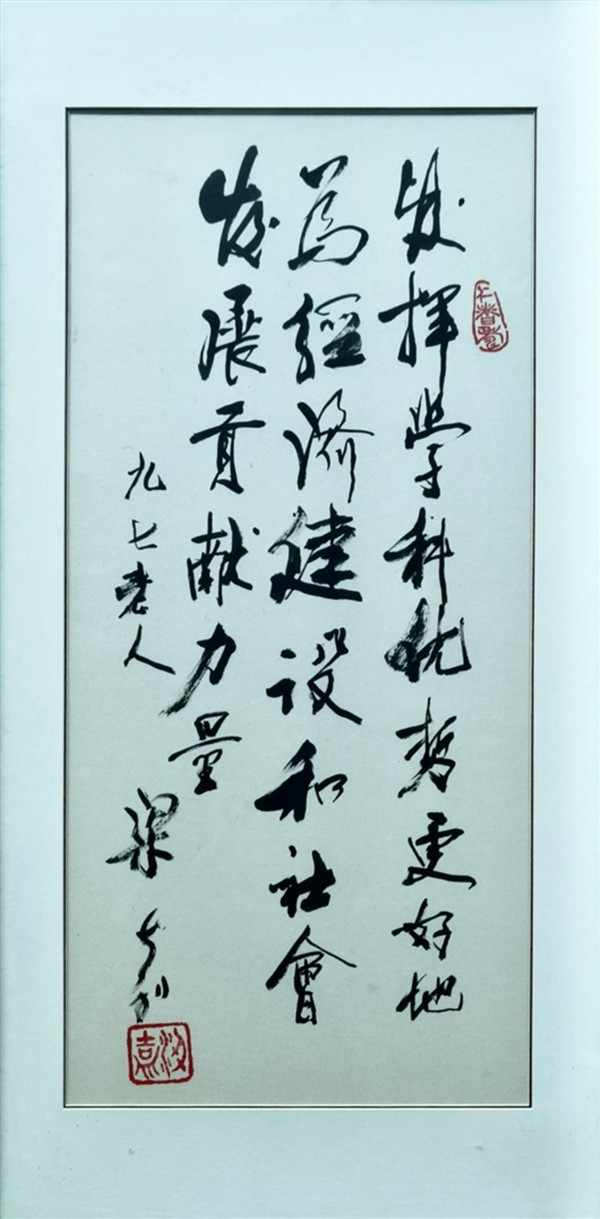 发挥学科优势更好地
為經济建设和社會
发展贡献力量
九七老人
梁